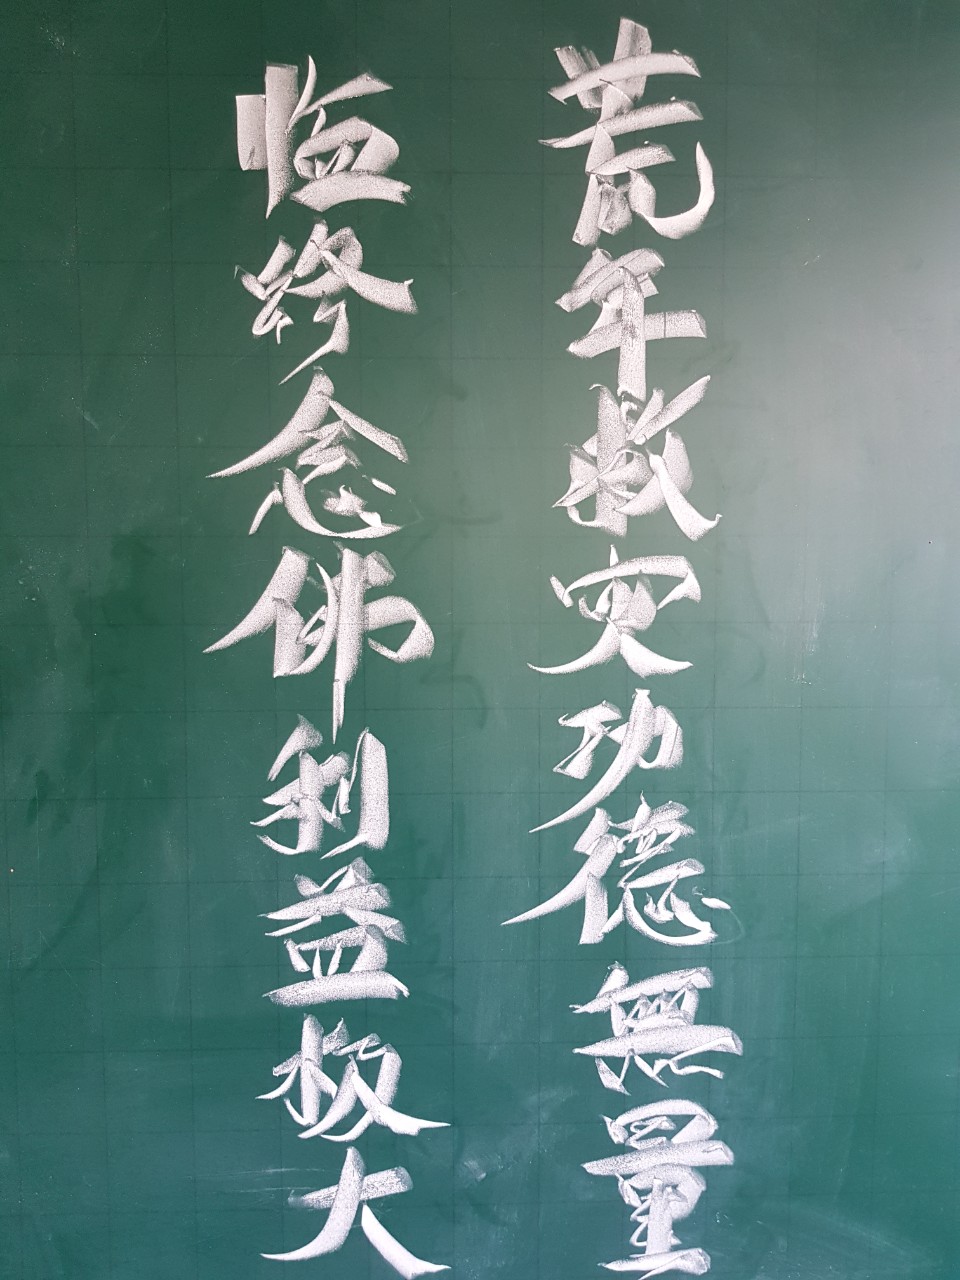 荒年救灾功德無量
临终念佛利益极大